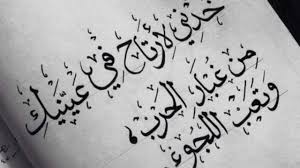 خذيني لأرتاح في عينيكِ
مِن غبار الحرب،
وتعب اللجوء